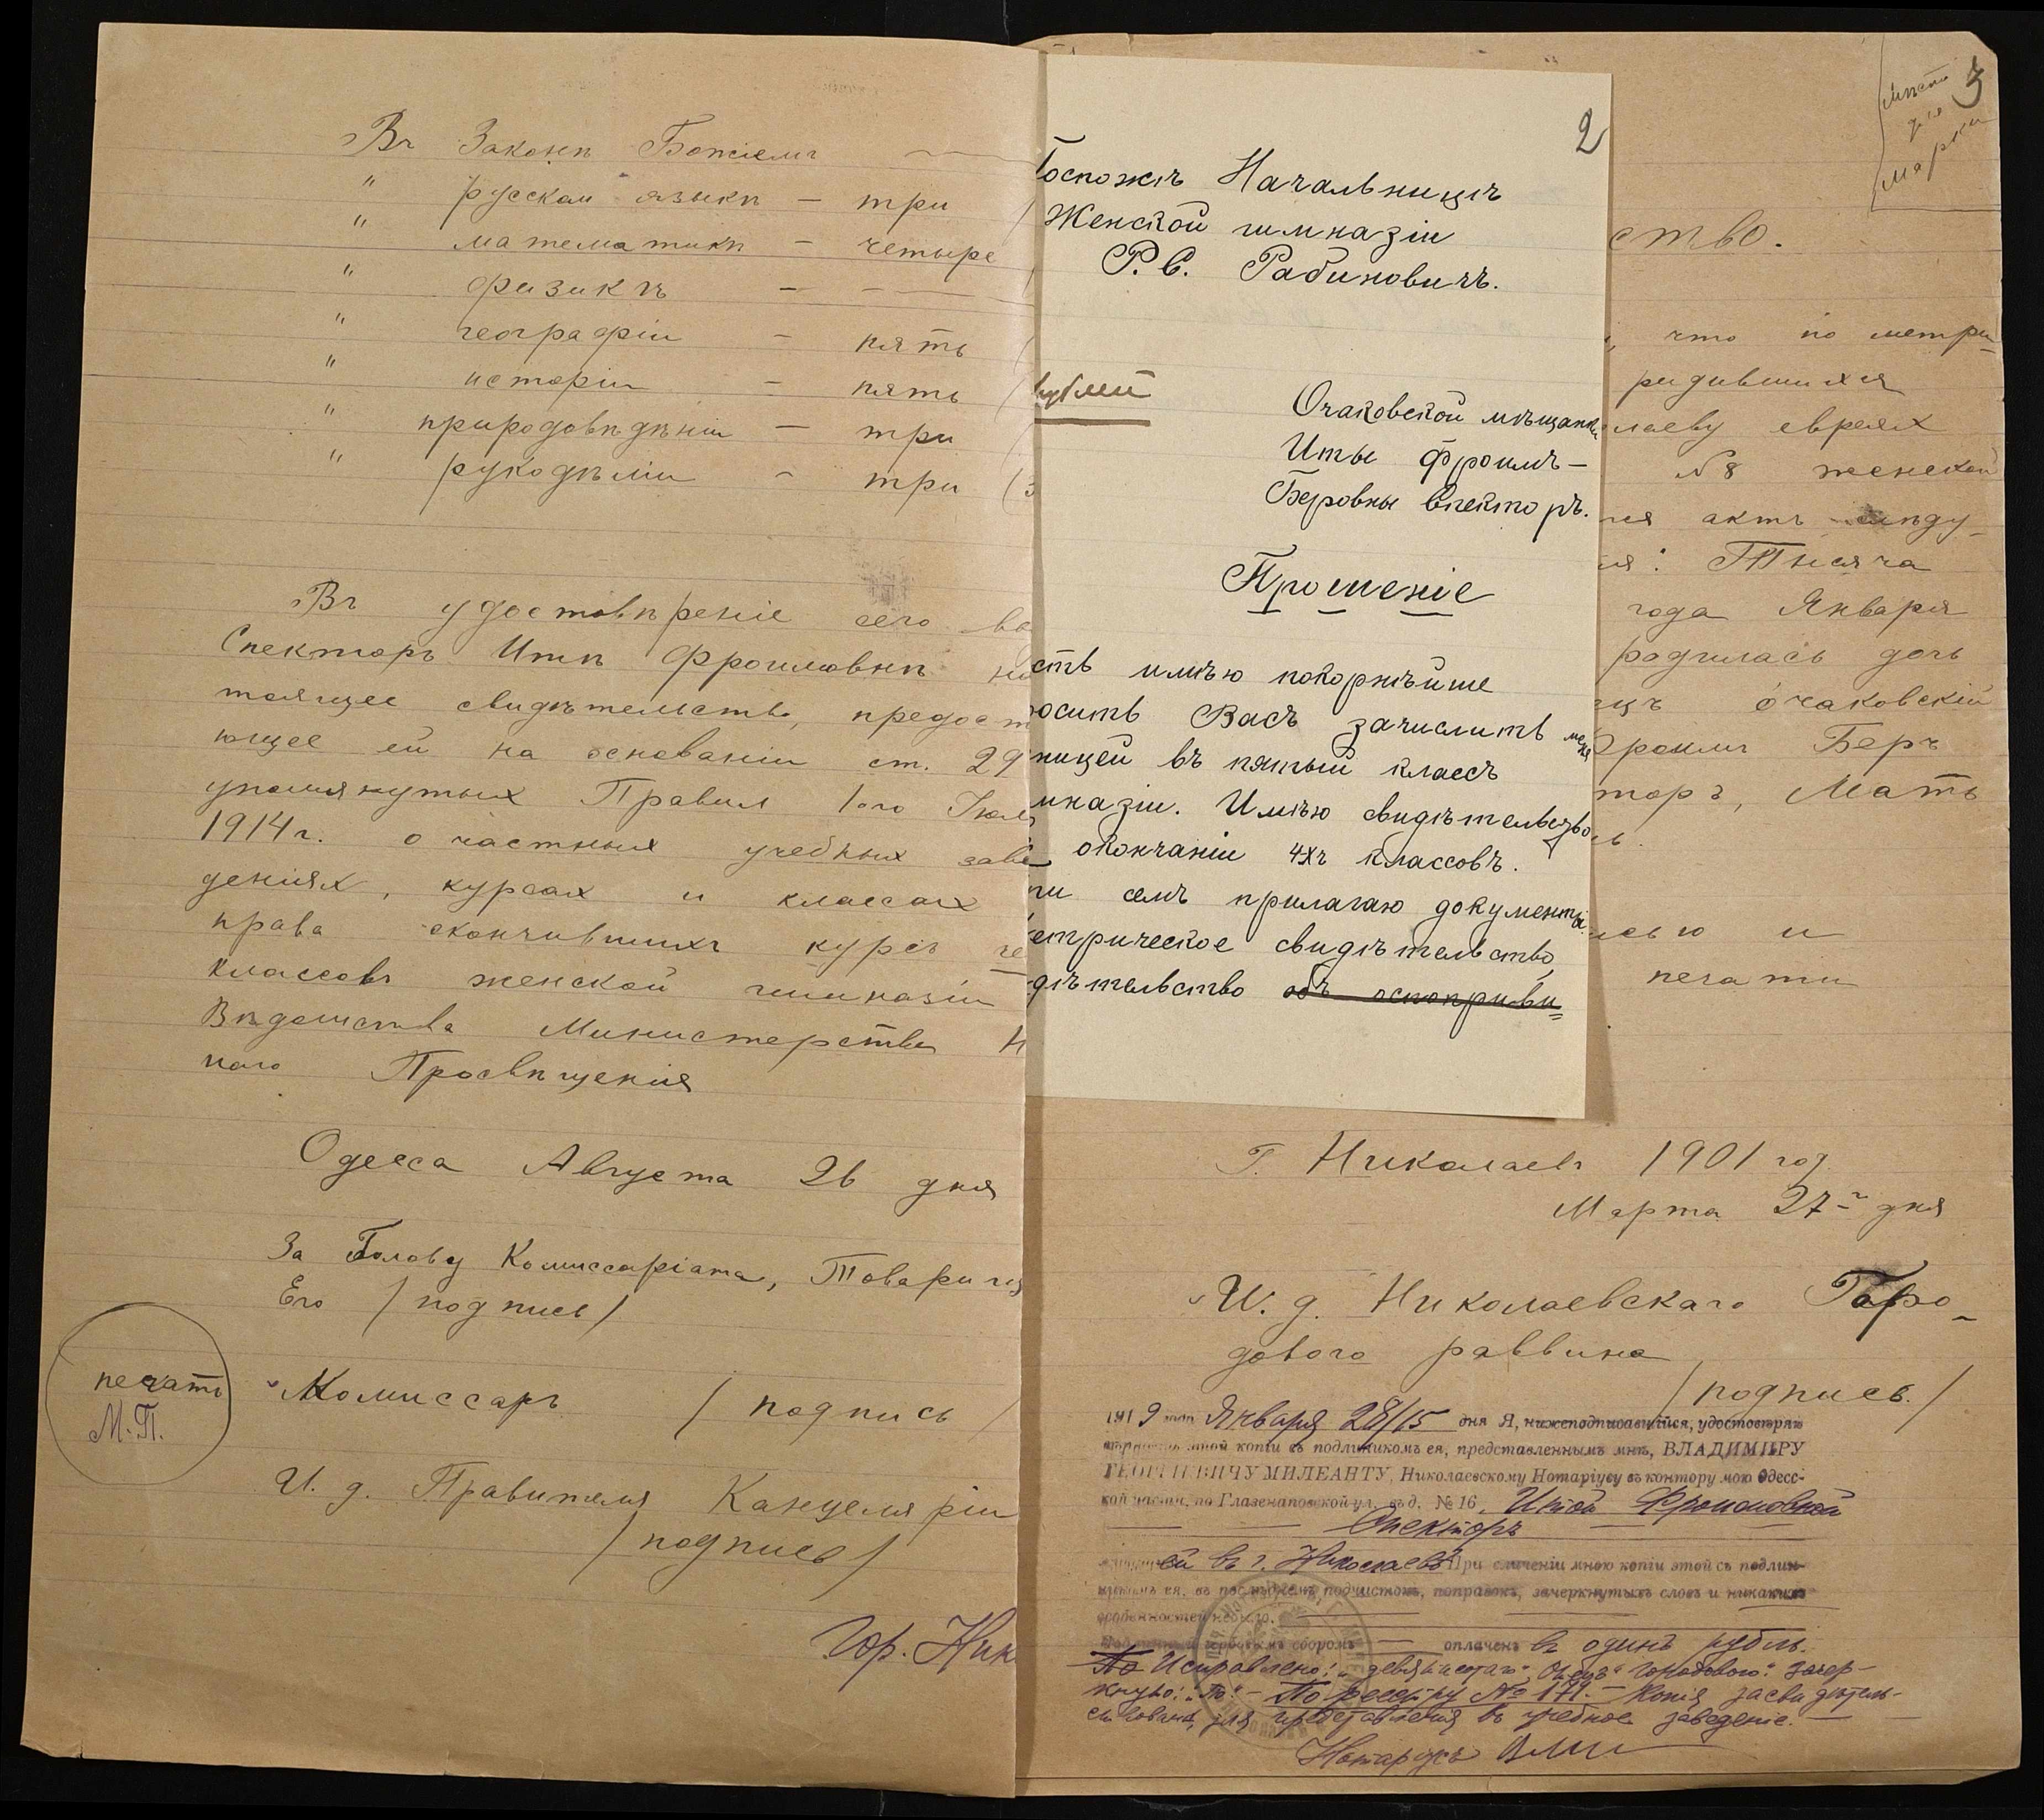 Въ Законѣ Божіемъ —
" русскомъ языкѣ — три
" математикѣ — четыре
" физикѣ — — —
" географіи — пять
" исторіи — пять
" природовѣдѣніи — три
" рукодѣліи — три (3
Въ удостовѣреніе сего вы
Спекторъ Итѣ Фроимовнѣ на
тоящее свидѣтельство, предост
ющее ей на основаніи ст. 29
упомянутыхъ Правил 1-го Іюл
1914 г. о частныхъ учебныхъ заве
деніях, курсах и классах
права окончившихъ курсъ че
классовъ женской гимназіи
Вѣдомства Министерства Н
наго Просвѣщенія
Одесса Августа 26 дня
За Голову Комиссаріата, Товарищъ
Его /подпись/
печать
М.П.
Комиссаръ /подпись/
И. д. Правителя Канцеляріи
/подпись/
Гор. Ник
2
Госпожѣ Начальницѣ
Женской гимназіи
Р. С. Рабиновичъ.
рублей
Очаковской мѣщанки
Иты Фроимъ-
Беровны Спекторъ.
Прошеніе
сть имѣю покорнѣйше
осить Васъ зачислить меня
ницей въ пятый классъ
мназіи. Имѣю свидѣтельство
окончаніи 4хъ классовъ.
ри семъ прилагаю документы:
етрическое свидѣтельство,
дѣтельство объ оспопривы=
3
Мѣсто
для
марки
ство.
, что по метри-
родившихся
лаеву евреях
№ 8 женской
ся актъ слѣду-
ія: Тысяча
года Января
родилась дочь
щъ очаковскій
Фроимъ Беръ
торъ, Мать
ь.
исью и
печати
Г. Николаевъ 1901 год
Марта 27-го дня
И. д. Николаевскаго Горо-
дового раввина
/подпись./
1919 года Января 28/15 дня Я, нижеподписавшійся, удостовѣряю
вѣрность этой копіи съ подлинникомъ ея, представленнымъ мнѣ, ВЛАДИМІРУ
ГЕОРГІЕВИЧУ МИЛЕАНТУ, Николаевскому Нотаріусу въ контору мою Одесс-
кой части, по Глазенаповской ул. въ д. № 16, Итой Фроимовной
Спекторъ
ей въ г. Николаевѣ При сличеніи мною копіи этой съ подлин-
никомъ ея, въ послѣднемъ подчистокъ, поправокъ, зачеркнутыхъ словъ и никакихъ
особенностей не было.
гербовымъ сборомъ — оплаченъ въ одинъ рубль.
По Исправлено: "девятьсотъ" "Городового". Зачер-
кнуто: "По" — По реестру № 179. — Копія засвидѣтель-
ствована для представленія въ учебное заведеніе. —
Нотаріусъ